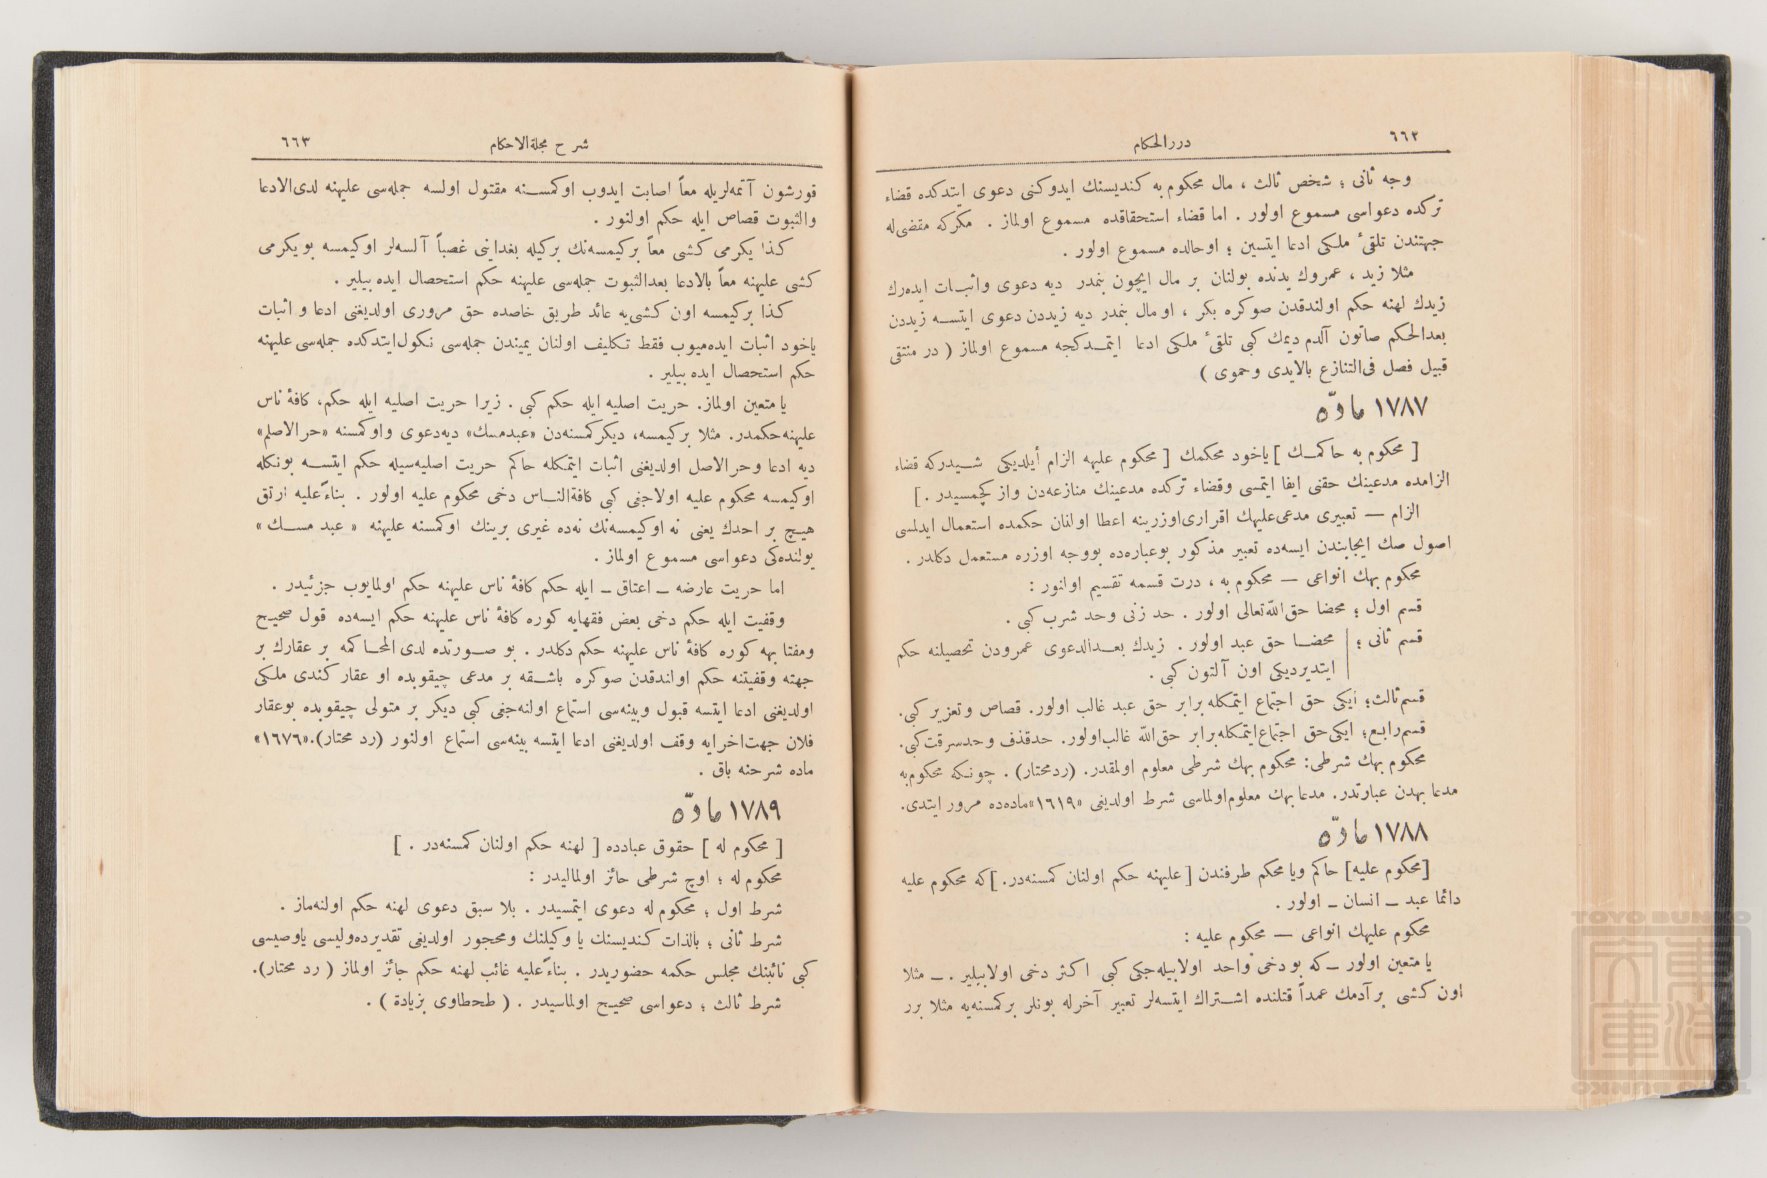 ٦٦٢
دررالحكام
وجه ثانى ؛ شخص ثالث ، مال محكوم به كنديسنك ايدوكنى دعوى ايتدكده قضاء
تركده دعواسى مسموع اولور . اما قضاء استحقاقده مسموع اولماز . مكركه مقضى‌له
جهتندن تلقىٴ ملكى ادعا ايتسين ؛ اوحالده مسموع اولور .
مثلا زيد ، عمروك يدنده بولنان بر مال ايچون بنمدر ديه دعوى واثبات ايده‌رك
زيدك لهنه حكم اولندقدن صوكره بكر ، اومال بنمدر ديه زيددن دعوى ايتسه زيددن
بعدالحكم صاتون آلدم ديمك كبى تلقىٴ ملكى ادعا ايتمدكجه مسموع اولماز ( در منتقى
قبيل فصل فى‌التنازع بالايدى وحموى )
١٧٨٧ مادّه
[ محكوم به حاكمك ] ياخود محكمك [ محكوم عليهه الزام أيلديكى شيدركه قضاء
الزامده مدعينك حقنى ايفا ايتمسى وقضاء تركده مدعينك منازعه‌دن واز كچمسيدر . ]
الزام — تعبيرى مدعى‌عليهك اقرارى‌اوزرينه اعطا اولنان حكمده استعمال ايدلسى
اصول صك ايجابندن ايسه‌ده تعبير مذكور بوعباره‌ده بووجه اوزره مستعمل دكلدر .
محكوم بهك انواعى — محكوم به ، درت قسمه تقسيم اولنور :
قسم اول ؛ محضا حق‌الله‌تعالى اولور . حد زنى وحد شرب كبى .
قسم ثانى ؛ محضا حق عبد اولور . زيدك بعدالدعوى عمرودن تحصيلنه حكم
ايتديرديكى اون آلتون كبى .
قسم‌ثالث؛ ايكى حق اجتماع ايتمكله‌برابر حق عبد غالب اولور. قصاص وتعزير كبى.
قسم‌رابع؛ ايكى‌حق اجتماع‌ايتمكله‌برابر حق‌الله غالب‌اولور. حدقذف وحدسرقت‌كبى.
محكوم بهك شرطى: محكوم بهك شرطى معلوم اولمقدر. (ردمحتار) . چونكه محكوم‌به
مدعا بهدن عبارتدر. مدعا بهك معلوم‌اولماسى شرط اولديغى «١٦١٩»ماده‌ده مرور ايتدى.
١٧٨٨ مادّه
[محكوم عليه] حاكم ويا محكم طرفندن [ عليهنه حكم اولنان كمسنه‌در. ] كه محكوم عليه
دائما عبد ــ انسان ــ اولور .
محكوم عليهك انواعى — محكوم عليه :
يا متعين اولور ــ كه بودخى واحد اولابيله‌جكى كبى اكثر دخى اولابيلير . ــ مثلا
اون كشى بر آدمك عمداً قتلنده اشتراك ايتسه‌لر تعبير آخرله بونلر بركمسنه‌يه مثلا برر
٦٦٣
شرح مجلةالاحكام
قورشون آتمه‌لريله معاً اصابت ايدوب اوكمسنه مقتول اولسه جمله‌سى عليهنه لدى‌الادعا
والثبوت قصاص ايله حكم اولنور .
كذا يكرمى كشى معاً بركيمسه‌نك بركيله بغدايني غصباً آلسه‌لر اوكيمسه بويكرمى
كشى عليهنه معاً بالادعا بعدالثبوت جمله‌سى عليهنه حكم استحصال ايده بيلير .
كذا بركيمسه اون كشى‌يه عائد طريق خاصده حق مرورى اولديغنى ادعا و اثبات
ياخود اثبات ايده‌ميوب فقط تكليف اولنان يميندن جمله‌سى نكول‌ايتدكده جمله‌سى عليهنه
حكم استحصال ايده بيلير .
يا متعين اولماز. حريت اصليه ايله حكم كبى . زيرا حريت اصليه ايله حكم، كافهٔ ناس
عليهنه‌حكمدر. مثلا بركيمسه، ديكركمسنه‌دن «عبدمسك» ديه‌دعوى واوكمسنه «حرالاصلم»
ديه ادعا وحرالاصل اولديغنى اثبات ايتمكله حاكم حريت اصليه‌سيله حكم ايتسه بونكله
اوكيمسه محكوم عليه اولاجغى كبى كافةالناس دخى محكوم عليه اولور . بناءًعليه ارتق
هيچ بر احدك يعنى نه اوكيمسه‌نك نه‌ده غيرى برينك اوكمسنه عليهنه « عبد مسك »
يولنده‌كى دعواسى مسموع اولماز .
اما حريت عارضه ــ اعتاق ــ ايله حكم كافهٔ ناس عليهنه حكم اولمايوب جزئيدر .
وقفيت ايله حكم دخى بعض فقهايه كوره كافهٔ ناس عليهنه حكم ايسه‌ده قول صحيح
ومفتا بهه كوره كافهٔ ناس عليهنه حكم دكلدر . بو صورتده لدى المحاكمه بر عقارك بر
جهته وقفيتنه حكم اولندقدن صوكره باشقه بر مدعى چيقوبده او عقار كندى ملكى
اولديغنى ادعا ايتسه قبول وبينه‌سى استماع اولنه‌جغى كبى ديكر بر متولى چيقوبده بوعقار
فلان جهت‌اخرايه وقف اولديغنى ادعا ايتسه بينه‌سى استماع اولنور (رد محتار).«١٦٧٦»
ماده شرحنه باق .
١٧٨٩ مادّه
[ محكوم له ] حقوق عبادده [ لهنه حكم اولنان كمسنه‌در . ]
محكوم له ؛ اوچ شرطى حائز اولماليدر :
شرط اول ؛ محكوم له دعوى ايتمسيدر . بلا سبق دعوى لهنه حكم اولنه‌ماز .
شرط ثانى ؛ بالذات كنديسنك يا وكيلنك ومحجور اولديغى تقديرده‌وليسى ياوصيسى
كبى نائبنك مجلس حكمه حضوريدر . بناءًعليه غائب لهنه حكم جائز اولماز ( رد محتار).
شرط ثالث ؛ دعواسى صحيح اولماسيدر . ( طحطاوى بزيادة ) .
TOYO BUNKO
東洋文庫
TOYO BUNKO